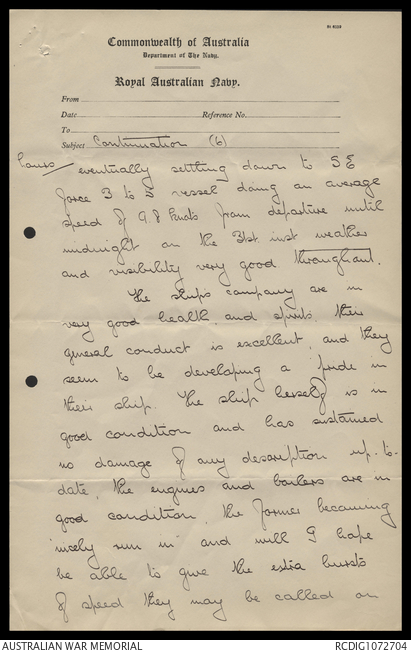 Commonwealth of Australia
Department of The Navy.
Royal Australian Navy.
From
Date Reference No.
To
Subject Continuation (6)
hours eventually settling down to S E
force 3 to 5 vessel doing an average
speed of 9.8 knots from departure until
midnight on the 31st inst weather
and visibility very good throughout.
The ships company are in
very good health and spirits, their
general conduct is excellent, and they
seem to be developing a pride in
their ship. The ship herself is in
good condition and has sustained
no damage of any description up-to-
date, the engines and boilers are in
good condition, the former becoming
"nicely run in" and will I hope
be able to give the extra bursts
of speed they may be called on
AUSTRALIAN WAR MEMORIAL
RCDIG1072704